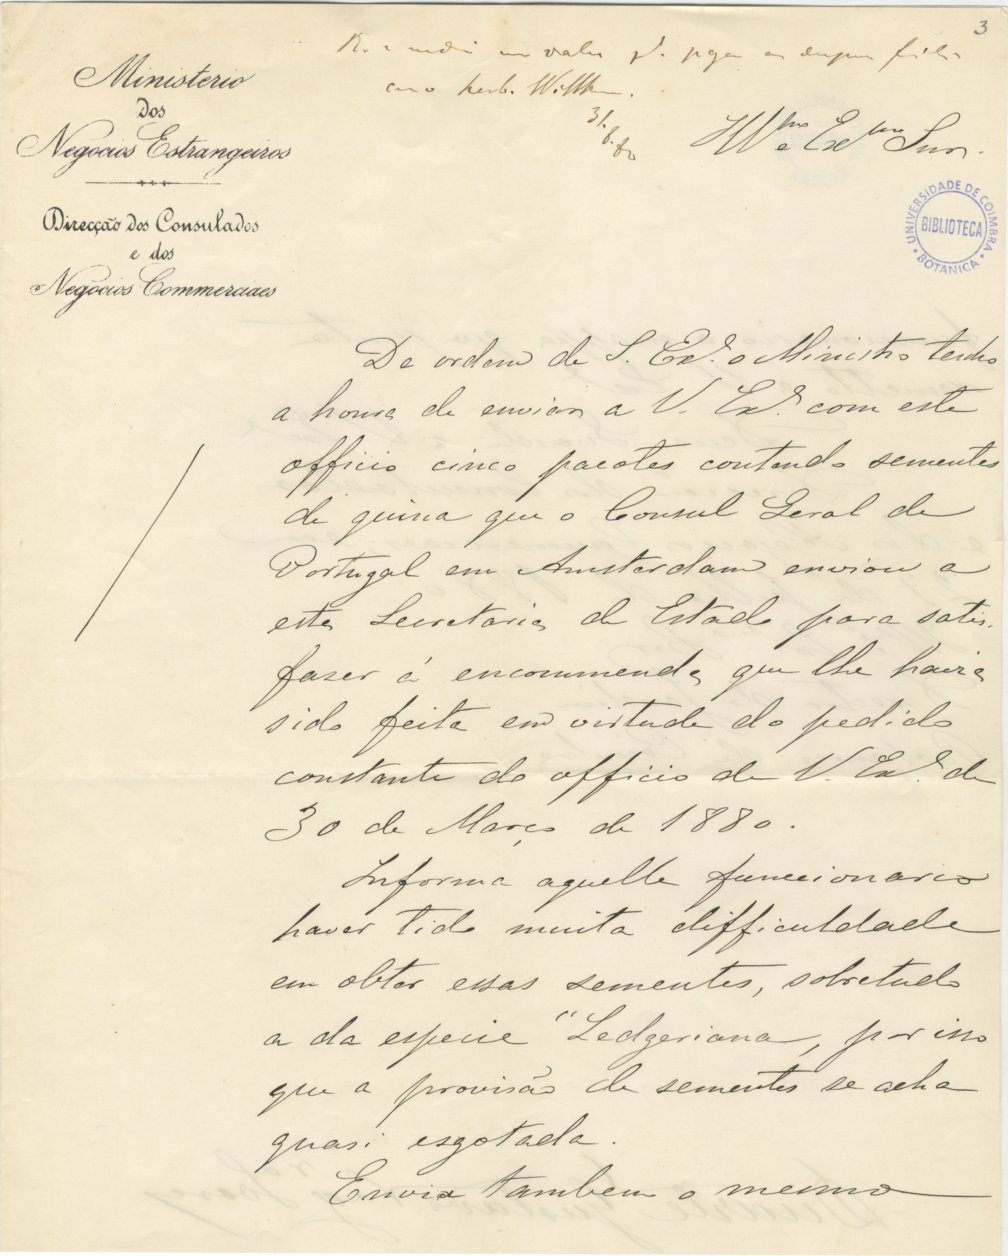 3
Ministerio
dos
Negocios Estrangeiros
Direcção dos Consulados
e dos
Negocios Commerciaes
R. e um vale pª. pagar as
com o herb. Willkm.
31.
Illmo e Exmo Snr.
UNIVERSIDADE DE COIMBRA
BIBLIOTECA
BOTANICA
De ordem de S. Exª. o Ministro tenho
a honra de enviar a V. Exª. com este
officio cinco pacotes contendo sementes
de quina que o Consul Geral de
Portugal em Amsterdam enviou a
esta Secretaria de Estado para satis-
fazer á encommenda que lhe havia
sido feita em virtude do pedido
constante do officio de V. Exª. de
30 de Março de 1880.
Informa aquelle funccionario
haver tido muita difficuldade
em obter essas sementes, sobretudo
a da especie "Ledgeriana, por isso
que a provisão de sementes se acha
quasi esgotada.
Envia tambem o mesmo